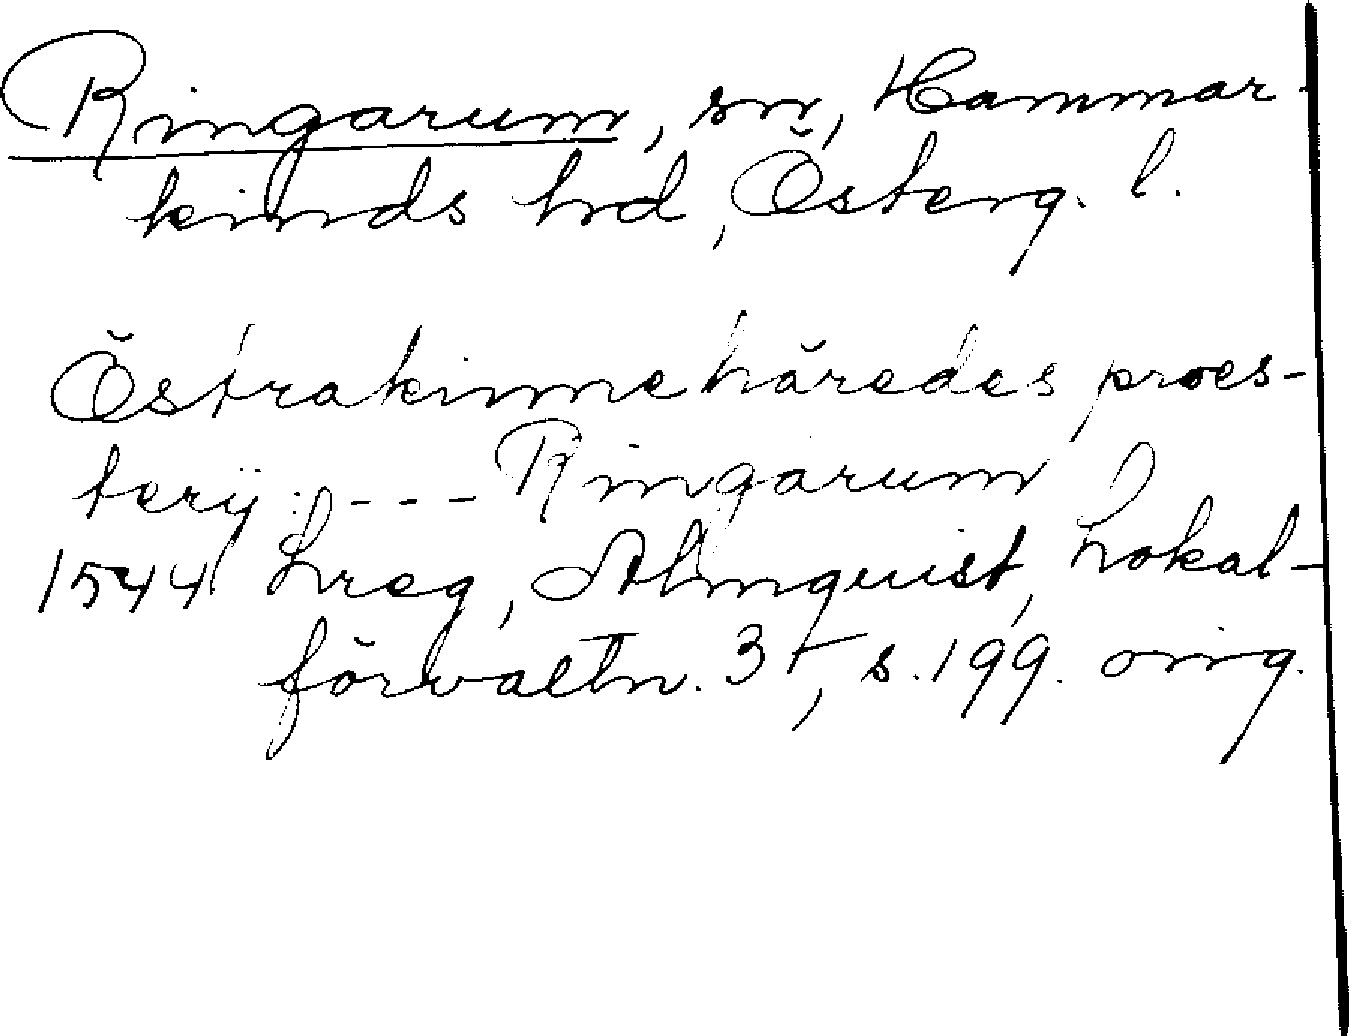 Ringarum, sn, Hammar-
kinds hd, Österg. l.
Östrakinnehäredes proes-
terij: - - - Ringarum
1544 Lreg, Almquist, Lokal-
förvaltn. 3 t, s. 199. orig.